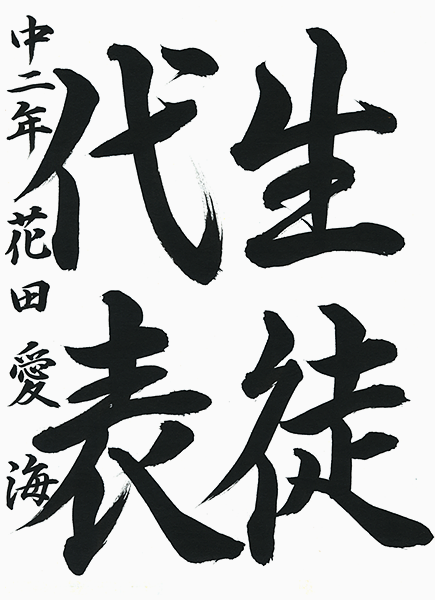 生徒
代表
中二年 花田愛海